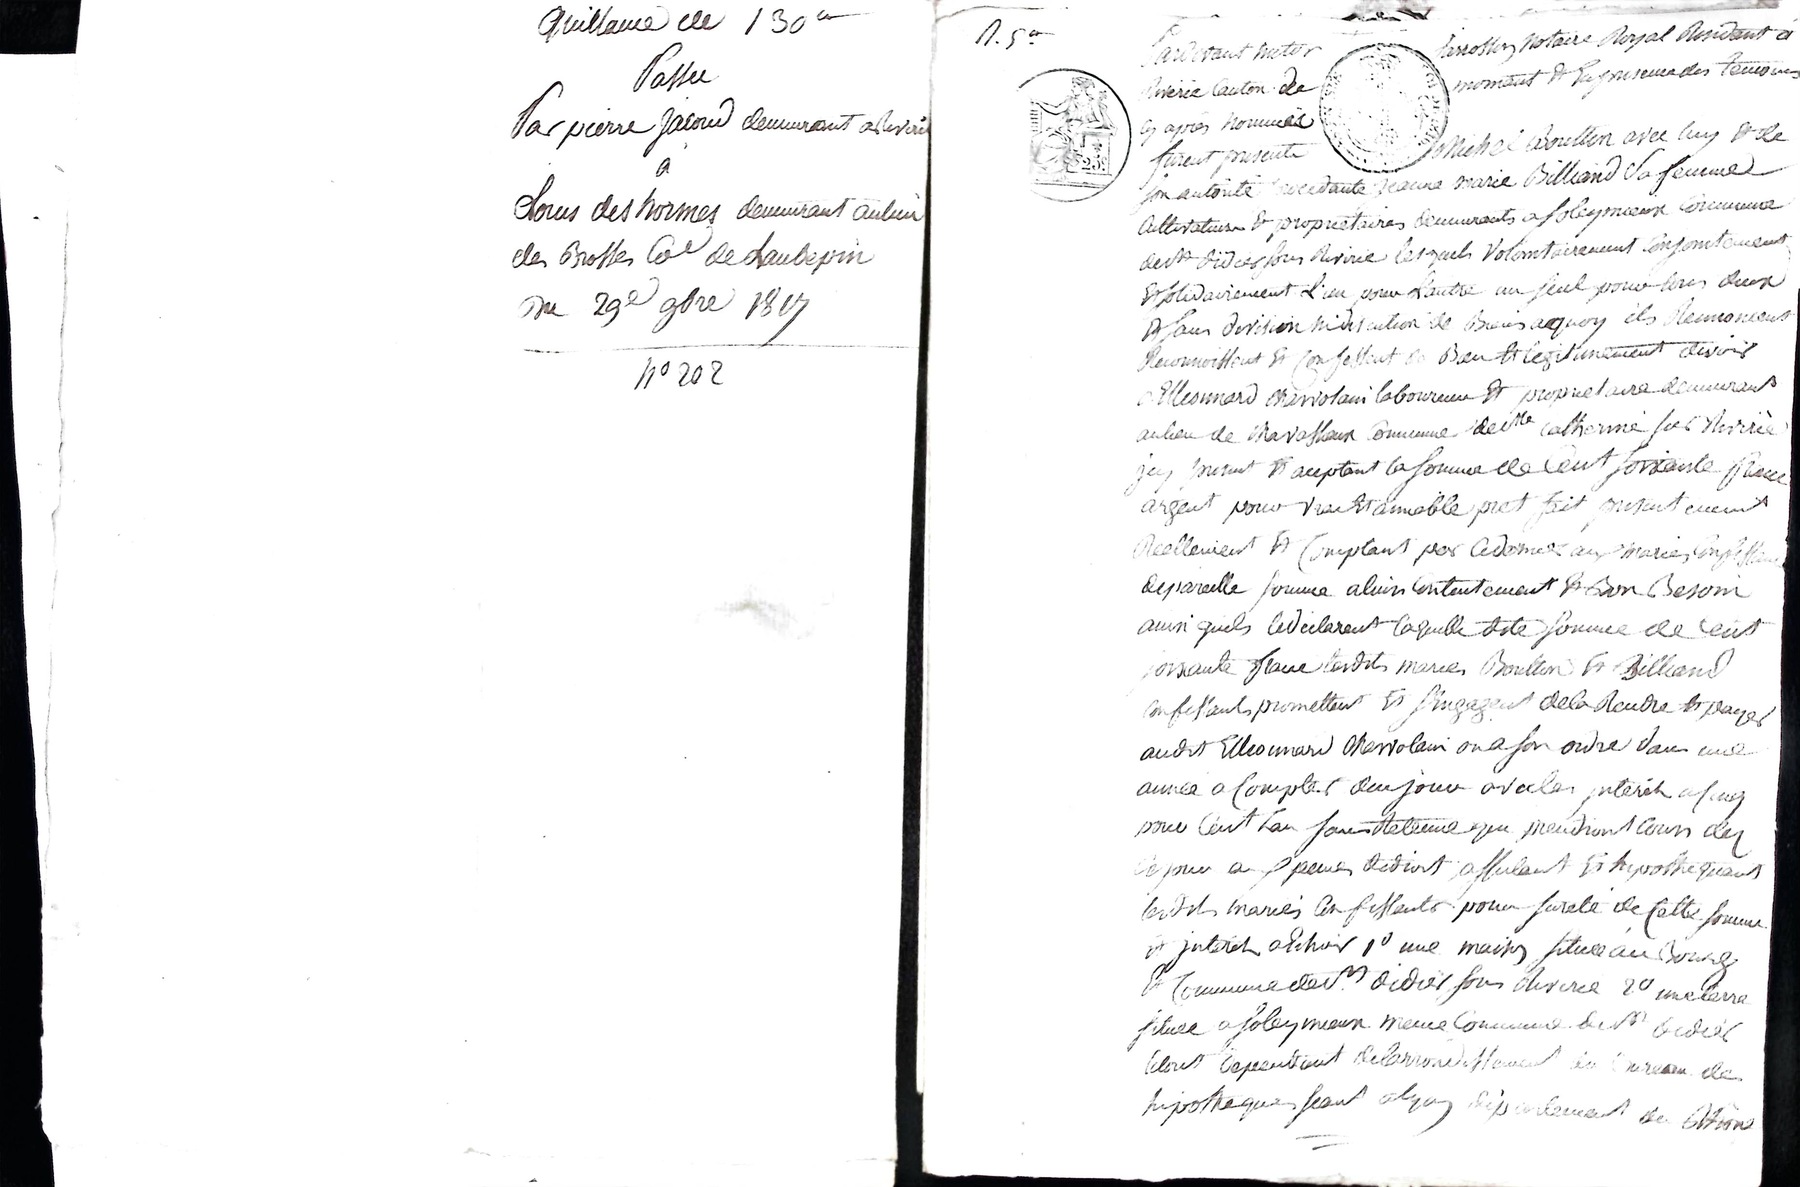 Quittance de 130 cs
Passée
Par pierre jacoud demeurant a Riverie
a
Louis des hormes demeurant au lieu
des Brosses Cne de Laubepin
Du 29e 9bre 1817
N° 202
Pardevant notaire Royal Residant a
Riverie Canton de moment & En presence des temoins
cy après nommés
furent presents Michel Boutton avec luy & de
son autorité procedante jeanne marie Billiand Sa femme
Cultivateurs & proprietaires demeurants a Soleymieux Commune
de St didier sous Riverie lesquels Volontairement Conjointement
& solidairement L'un pour L'autre un seul pour tous deux
& sans division ni discution de Biens aquoy ils Renoncent
Reconnoissent Et Confessent Bien & legitimement devoir
a Ellesmard laboureur & proprietaire demeurant
au lieu de Commune de Ste catherine sur Riverie
jcy present & acceptant la somme de Cent soixante francs
argent pour vrai & amiable pret fait presentement
Reellement & Comptant par ce dernier aux mariés Confessants
de pareille somme a leurs Contentement & Bon Besoin
ainsi quils le declarent laquelle dite somme de Cent
soixante francs lesdits mariés Boutton & Billiand
Confessants promettent & s'engagent de la Rendre & payer
audit Ellesmard ou a son ordre dans une
année a Compter de ce jour avec les jnterêts a cinq
pour Cent L'an sans Retenue qui prendront cours dez
ce jour a peines de droit affectant & hypothequant
lesdits mariés Confessants pour sureté de Cette somme
& jnterêts a Echoir 1° une maison située au Bourg
& Commune de St didier sous Riverie 2° une terre
située a Soleymieux meme Commune de St didier
le tout dependant de Larrondissement du Bureau de
hipotheques seant a Lyon département du Rhône